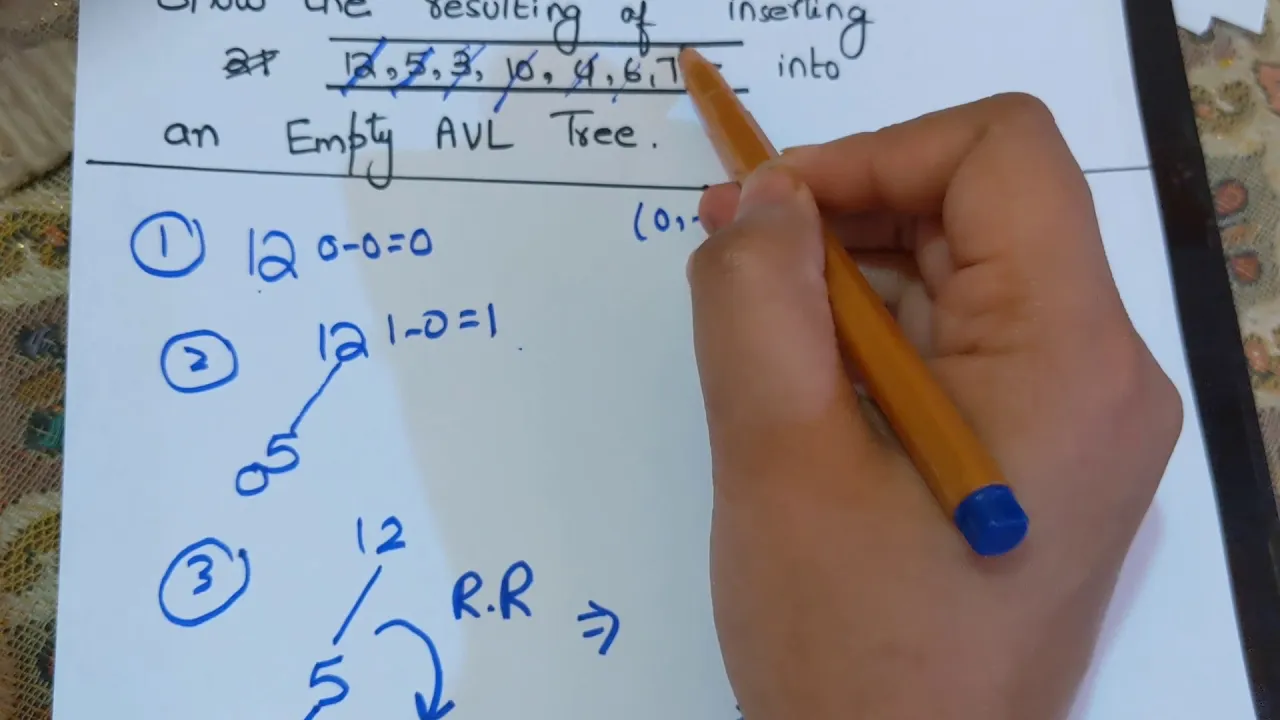 Show the resulting of inserting
12, 5, 3, 10, 4, 6, 7 into
an Empty AVL Tree.
(0,
1 12 0-0=0
2 12 1-0=1
0 5
3 12
R.R ⇒
5